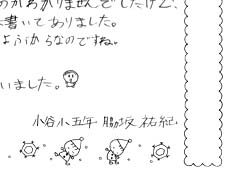 のかわかりませんでしたけど、
書いてありました。
ようからなのですね。
いました。
小谷小五年 脇坂 祐紀